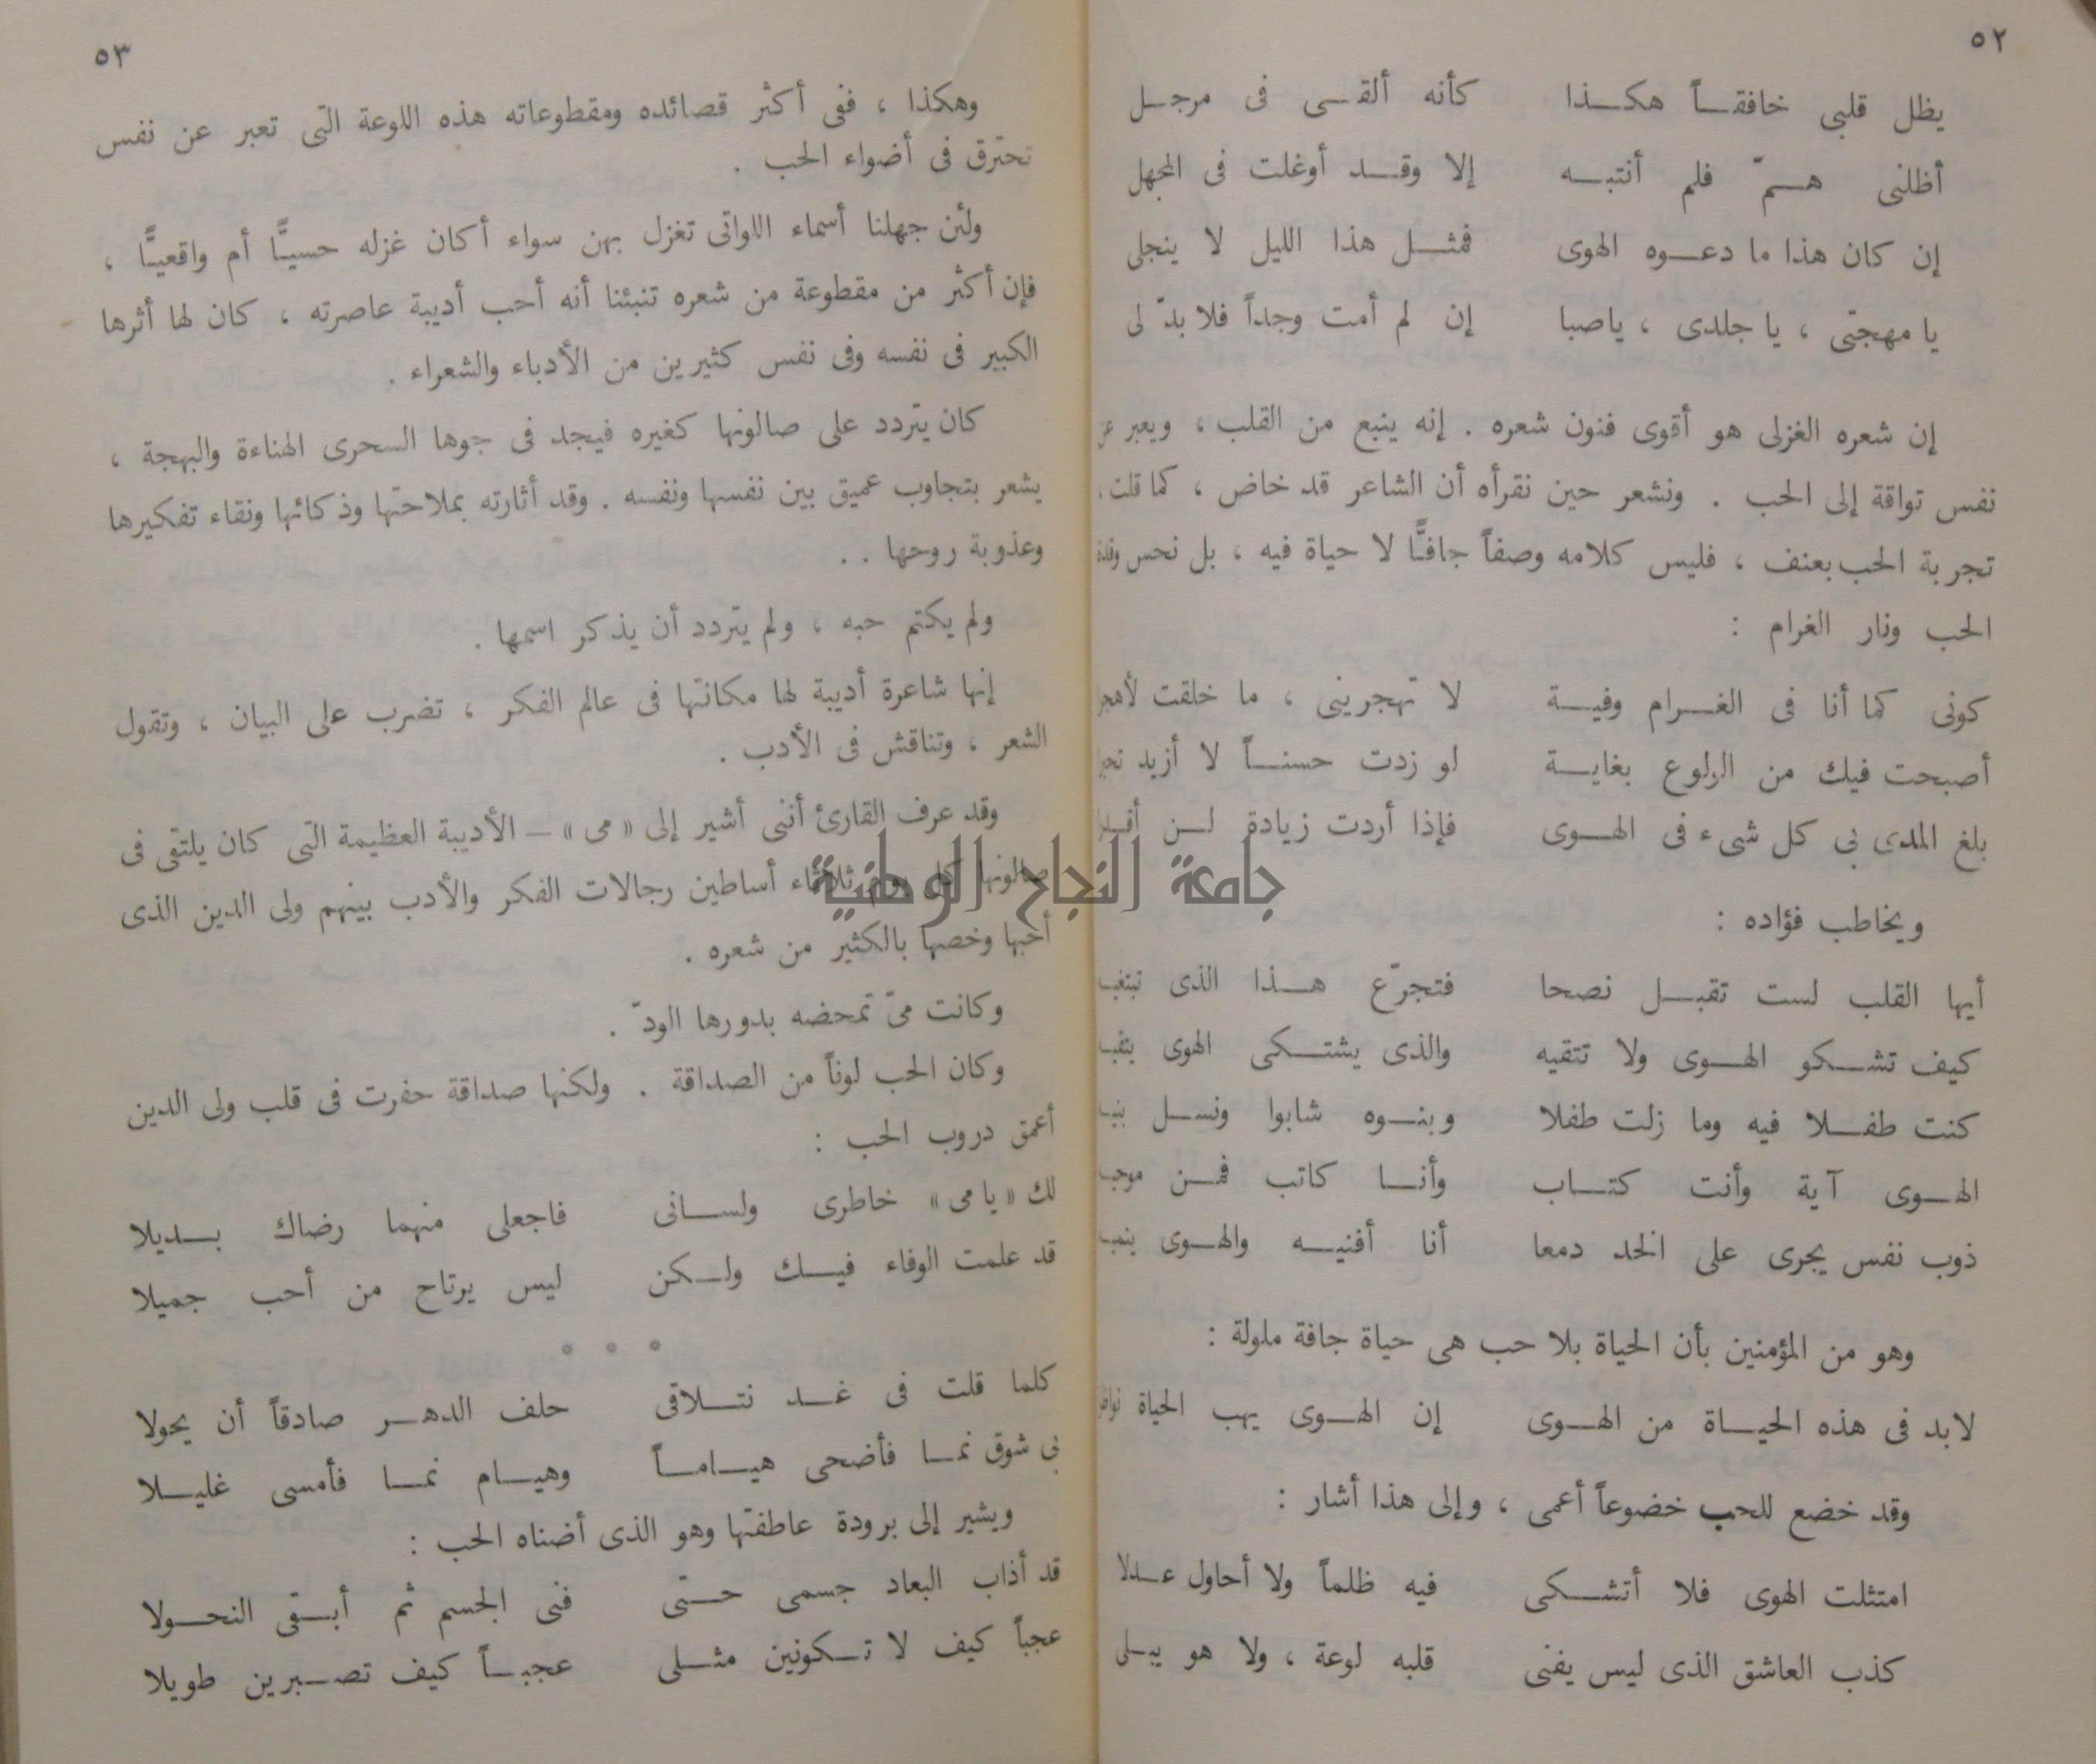 ٥٢
يظل قلبى خافقـــاً هكـــذا كأنه ألقـــى فى مرجـــل
أظلنى هـــمّ فلم أنتبـــه إلا وقـــد أوغلت فى المجهل
إن كان هذا ما دعـــوه الهوى فمثـــل هذا الليل لا ينجلى
يا مهجتى ، يا جلدى ، ياصبا إن لم أمت وجداً فلا بدّ لى
إن شعره الغزلى هو أقوى فنون شعره . إنه ينبع من القلب ، ويعبر عن
نفس تواقة إلى الحب . ونشعر حين نقرأه أن الشاعر قد خاض ، كما قلت ،
تجربة الحب بعنف ، فليس كلامه وصفاً جافيًّا لا حياة فيه ، بل نحس وقدة
الحب ونار الغرام :
كونى كما أنا فى الغـــرام وفيـــة لا تهجرينى ، ما خلقت لأهجرا
أصبحت فيك من الولوع بغايـــة لو زدت حسنـــاً لا أزيد
بلغ المدى بى كل شىء فى الهـــوى فإذا أردت زيادة لـــن
ويخاطب فؤاده :
أيها القلب لست تقبـــل نصحا فتجرّع هـــذا الذى
كيف تشـــكو الهـــوى ولا تتقيه والذى يشتـــكى الهوى
كنت طفـــلا فيه وما زلت طفلا وبنـــوه شابوا ونســـل
الهـــوى آية وأنت كتـــاب وأنـــا كاتب فمـــن
ذوب نفس يجرى على الخد دمعا أنا أفنيـــه والهـــوى
وهو من المؤمنين بأن الحياة بلا حب هى حياة جافة ملولة :
لابد فى هذه الحيـــاة من الهـــوى إن الهـــوى يهب الحياة
وقد خضع للحب خضوعاً أعمى ، وإلى هذا أشار :
امتثلت الهوى فلا أتشـــكى فيه ظلماً ولا أحاول عـــدلا
كذب العاشق الذى ليس يفنى قلبه لوعة ، ولا هو يبـــلى
٥٣
وهكذا ، ففى أكثر قصائده ومقطوعاته هذه اللوعة التى تعبر عن نفس
تحترق فى أضواء الحب .
ولئن جهلنا أسماء اللواتى تغزل بهن سواء أكان غزله حسيًّا أم واقعيًّا ،
فإن أكثر من مقطوعة من شعره تنبئنا أنه أحب أديبة عاصرته ، كان لها أثرها
الكبير فى نفسه وفى نفس كثيرين من الأدباء والشعراء .
كان يتردد على صالونها كغيره فيجد فى جوها السحرى الهناءة والبهجة ،
يشعر بتجاوب عميق بين نفسها ونفسه . وقد أثارته بملاحتها وذكائها ونقاء تفكيرها
وعذوبة روحها . .
ولم يكتم حبه ، ولم يتردد أن يذكر اسمها .
إنها شاعرة أديبة لها مكانتها فى عالم الفكر ، تضرب على البيان ، وتقول
الشعر ، وتناقش فى الأدب .
وقد عرف القارئ أننى أشير إلى « مى » – الأديبة العظيمة التى كان يلتقى فى
صالونها كل يوم ثلاثاء أساطين رجالات الفكر والأدب بينهم ولى الدين الذى
أحبها وخصها بالكثير من شعره .
جامعة النجاح الوطنية
وكانت مىّ تمحضه بدورها الودّ .
وكان الحب لوناً من الصداقة . ولكنها صداقة حفرت فى قلب ولى الدين
أعمق دروب الحب :
لك « يا مى » خاطرى ولســـانى فاجعلى منهما رضاك بـــديلا
قد علمت الوفاء فيـــك ولـــكن ليس يرتاح من أحب جميلا
* * *
كلما قلت فى غـــد نتـــلاقى حلف الدهـــر صادقاً أن يحولا
بى شوق نمـــا فأضحى هيـــامـــاً وهيـــام نمـــا فأمسى غليـــلا
ويشير إلى برودة عاطفتها وهو الذى أضناه الحب :
قد أذاب البعاد جسمى حـــتى فنى الجسم ثم أبـــقى النحـــولا
عجباً كيف لا تـــكونين مثـــلى عجبـــاً كيف تصـــبرين طويلا